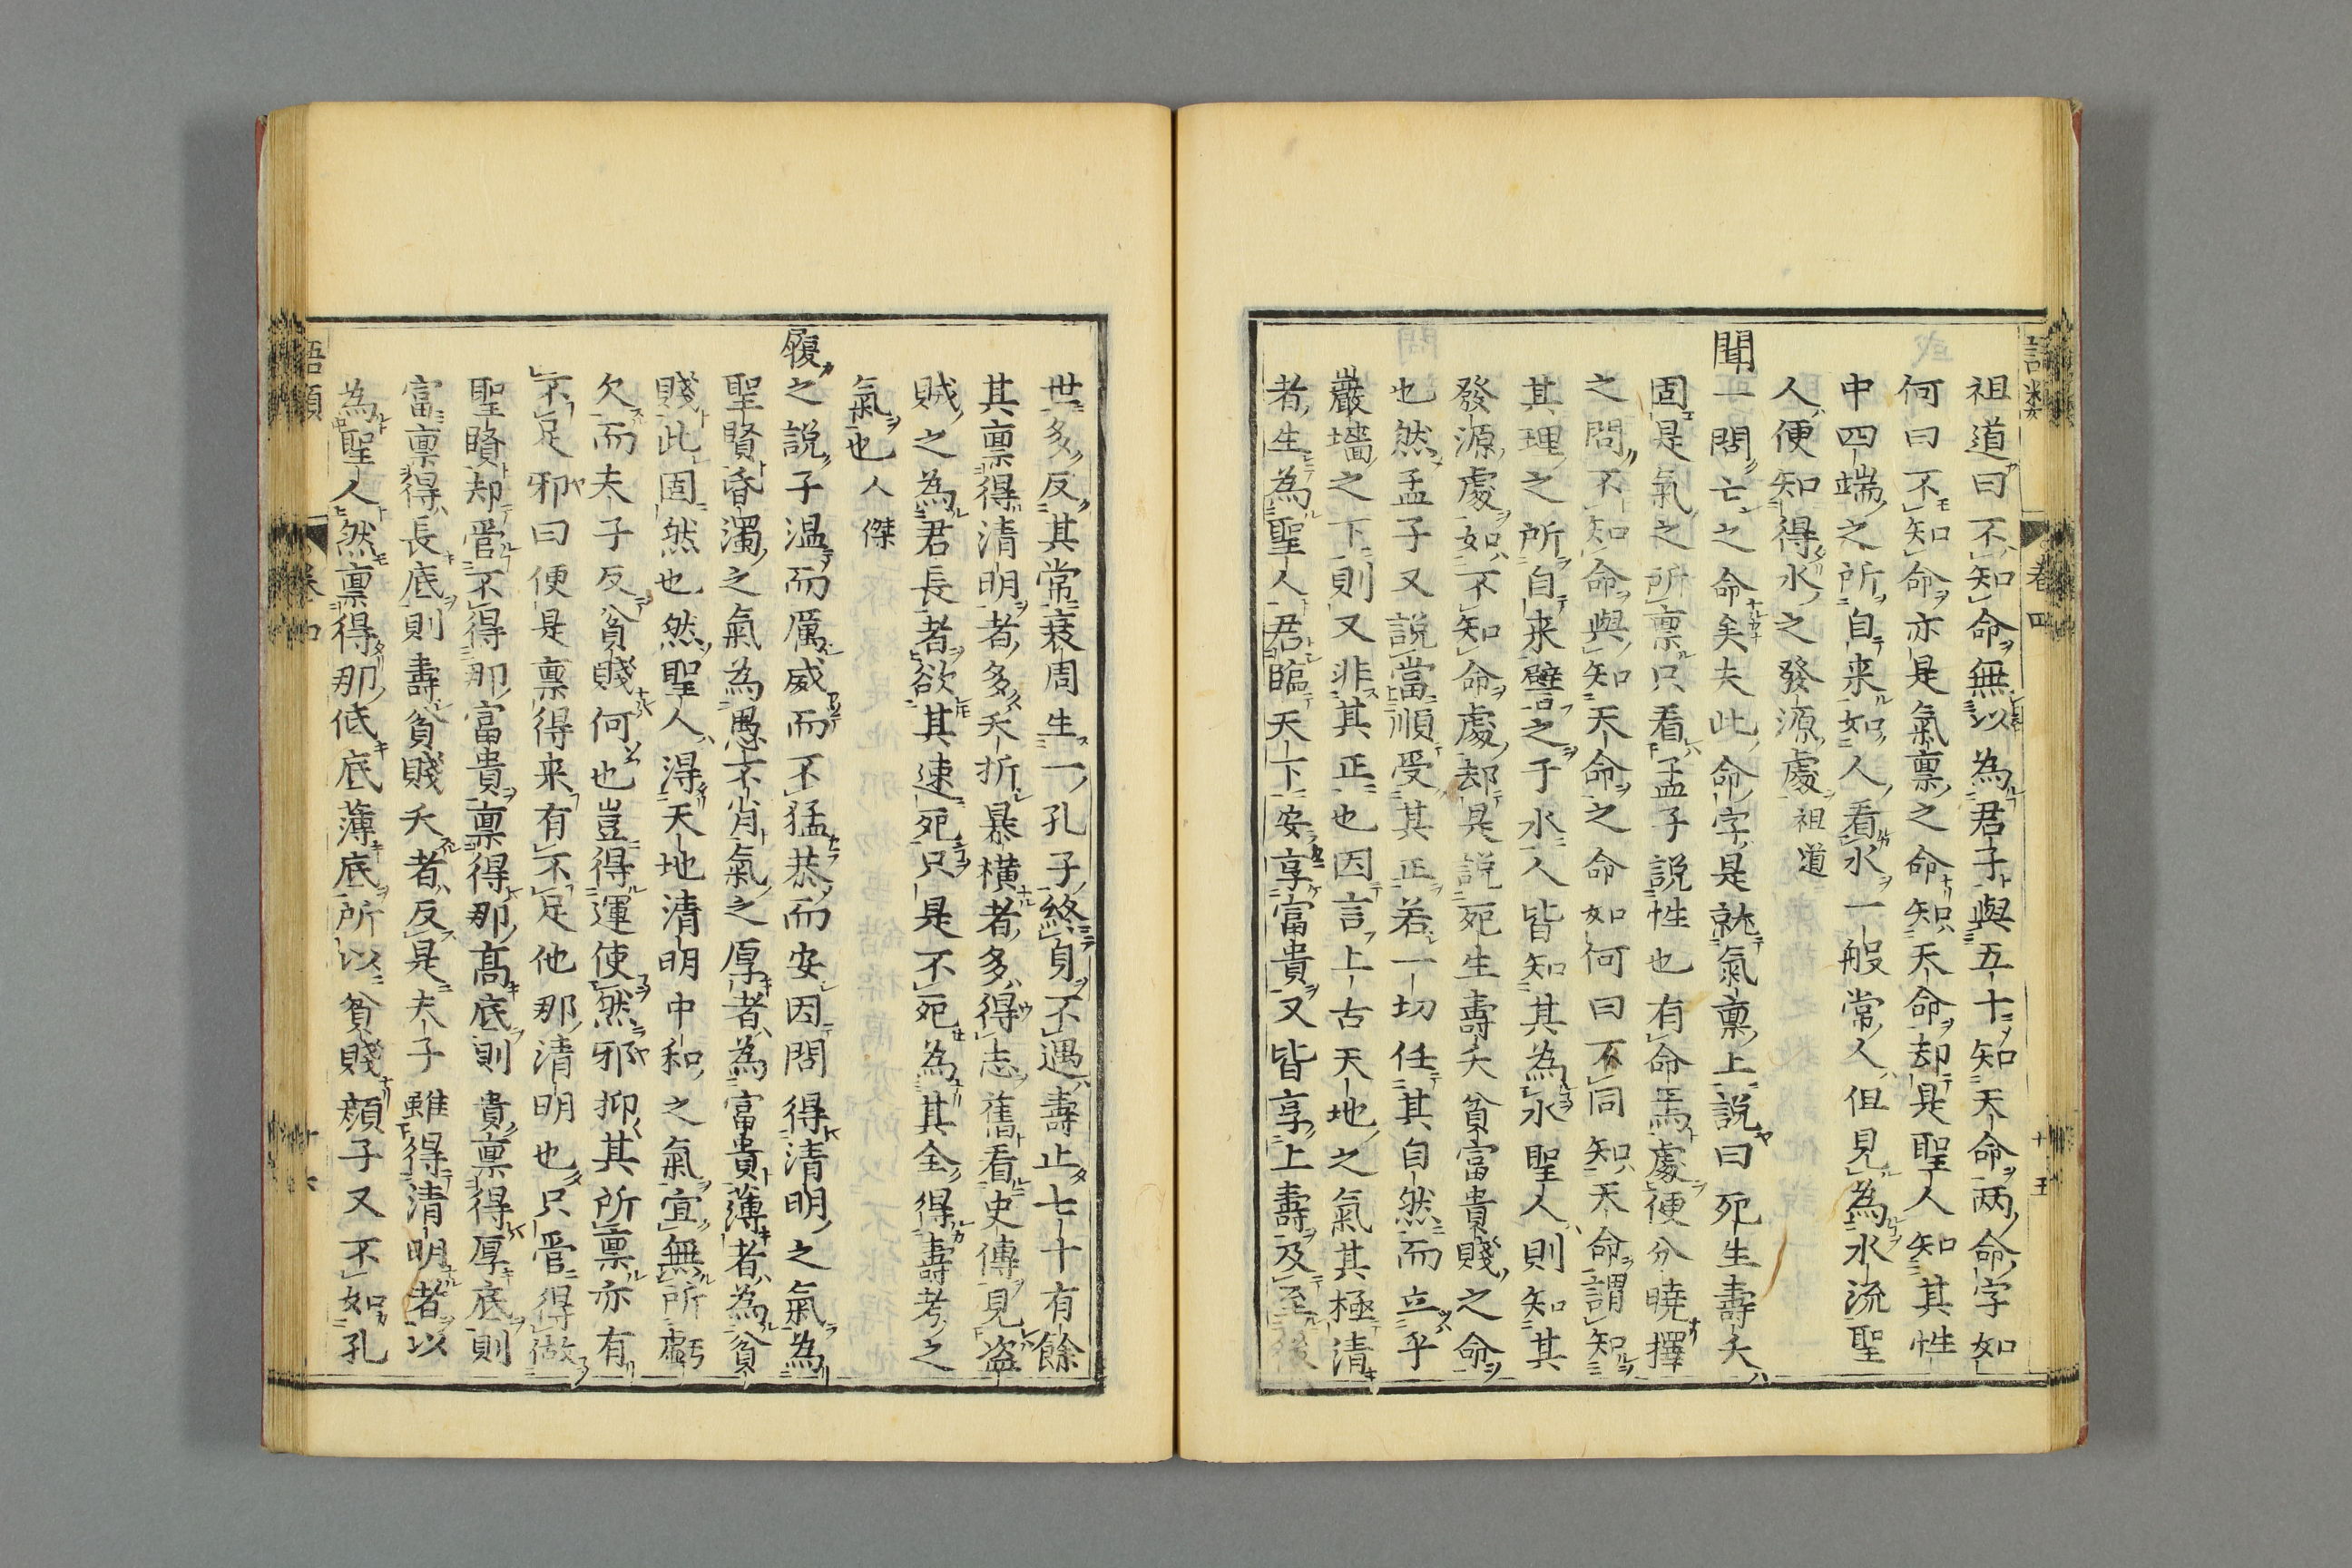 祖道曰不知命無以為君子與五十知天命兩命字如
何曰不知命亦是氣禀之命知天命却是聖人知其性
中四端之所自来如人看水一般常人但見為水流聖
人便知得水之發源處祖道
聞一問亡之命矣夫此命字是就氣禀上說曰死生壽夭
固是氣之所禀只看孟子說性也有命焉處便分曉擇
之問不知命與知天命之命如何曰不同知天命謂知
其理之所自来譬之于水人皆知其為水聖人則知其
發源處如不知命處却是說死生壽夭貧富貴賤之命
也然孟子又說當順受其正若一切任其自然而立乎
巖墻之下則又非其正也因言上古天地之氣其極清
者生為聖人君臨天下安享富貴又皆享上壽及至後
世多反其常衰周生一孔子終身不遇壽止七十有餘
其禀得清明者多夭折暴橫者多得志舊看史傳見盗
賊之為君長者欲其速死只是不死為其全得壽考之
氣也人傑
履之說子温而厲威而不猛恭而安因問得清明之氣為
聖賢昏濁之氣為愚不肖氣之厚者為富貴薄者為貧
賤此固然也然聖人得天地清明中和之氣宜無所虧
欠而夫子反貧賤何也豈得運使然邪抑其所禀亦有
不足邪曰便是禀得来有不足他那清明也只管得做
聖賢却管不得那富貴禀得那高底則貴禀得厚底則
富禀得長底則壽貧賤夭者反是夫子雖得清明者以
為聖人然禀得那低底薄底所以貧賤顏子又不如孔
語類
卷四
十五